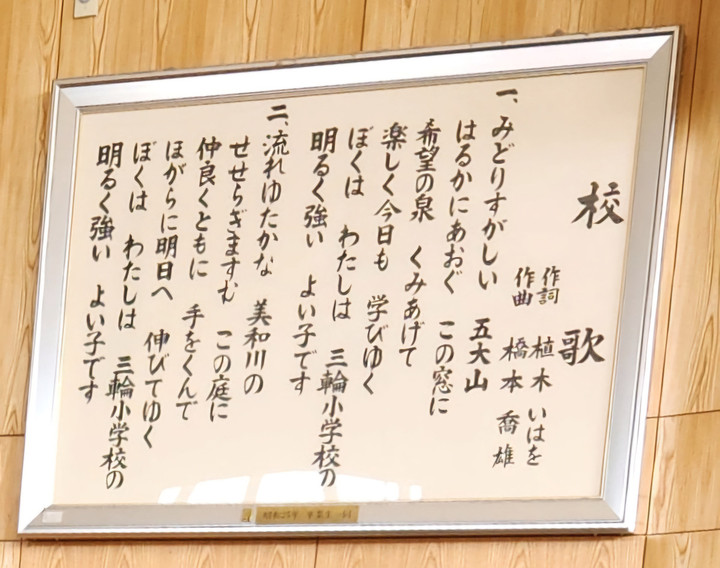 校歌
作詞 植木いはを
作曲 橋本喬雄
一、みどりすがしい 五大山
はるかにあおぐ この窓に
希望の泉 くみあげて
楽しく今日も 学びゆく
ぼくは わたしは 三輪小学校の
明るく強い よい子です
二、流れゆたかな 美和川の
せせらぎますむ この庭に
仲良くともに 手をくんで
ほがらに明日へ 伸びてゆく
ぼくは わたしは 三輪小学校の
明るく強い よい子です